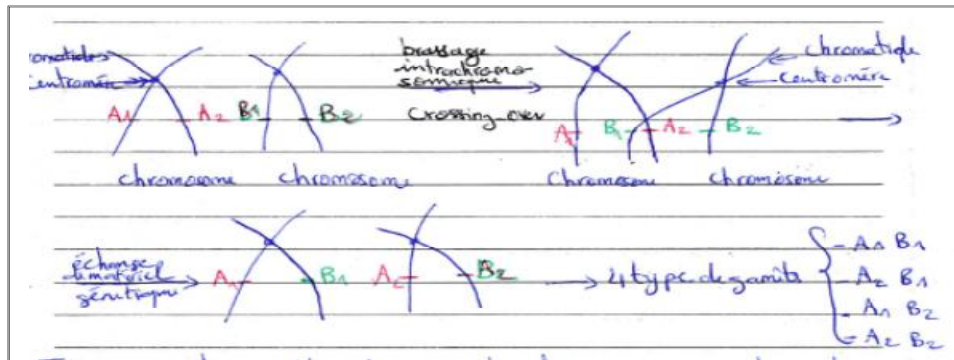 chromatides
centromère
A1 A2 B1 B2
chromosome chromosome
brassage
intrachromo-
somique
Crossing-over
chromatide
centromère
A1 B1 A2 B2
Chromosome Chromosome
échange
de matériel
génétique
A1 B1 A2 B2
4 type de gamète
- A1 B1
- A2 B1
- A1 B2
- A2 B2